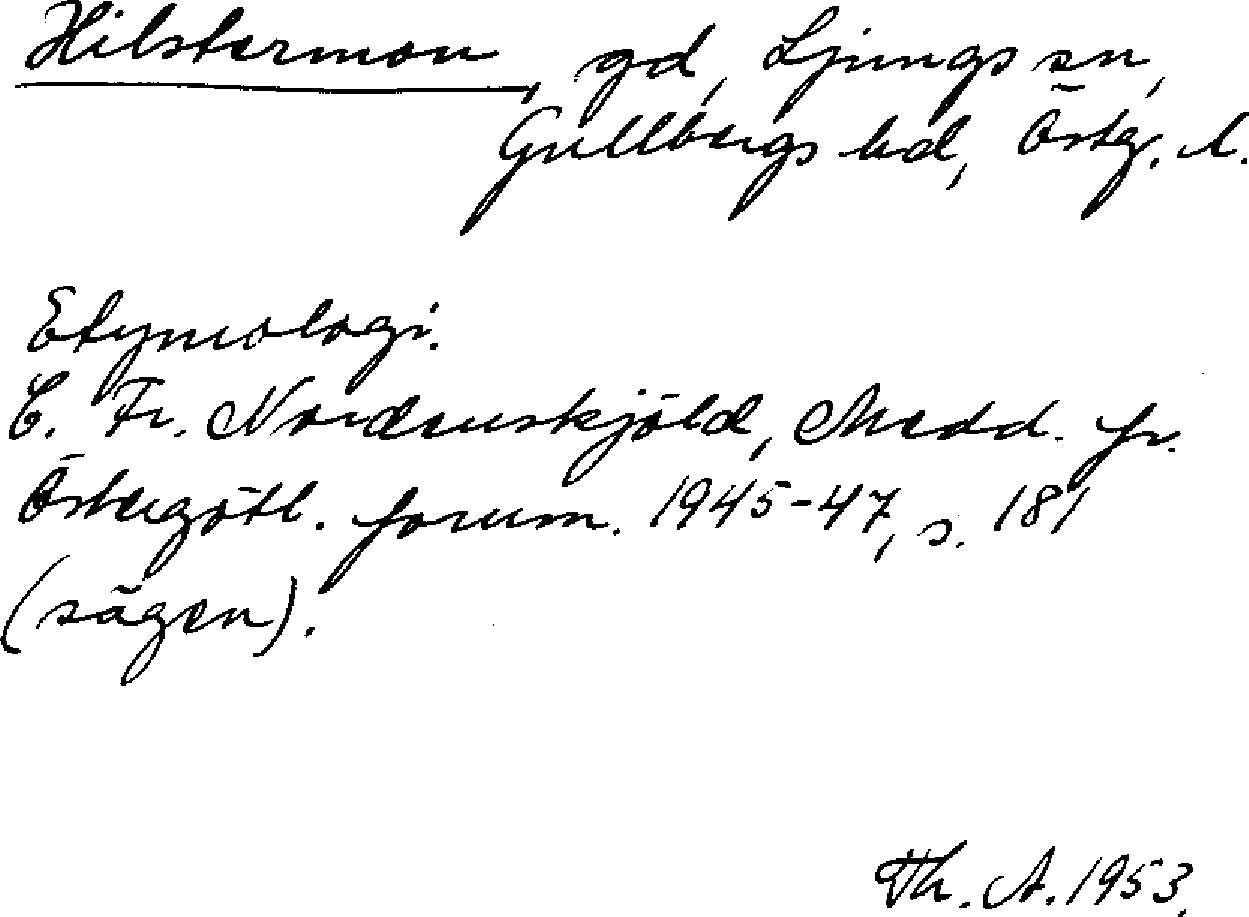 Hilstermon, gd, Ljungs sn,
Gullbergs hd, Östg. l.
Etymologi.
C. Fr. Nordenskjöld, Medd. fr.
Östergötl. fornm. 1945-47, s. 181
(sägen).
Th. A. 1953.